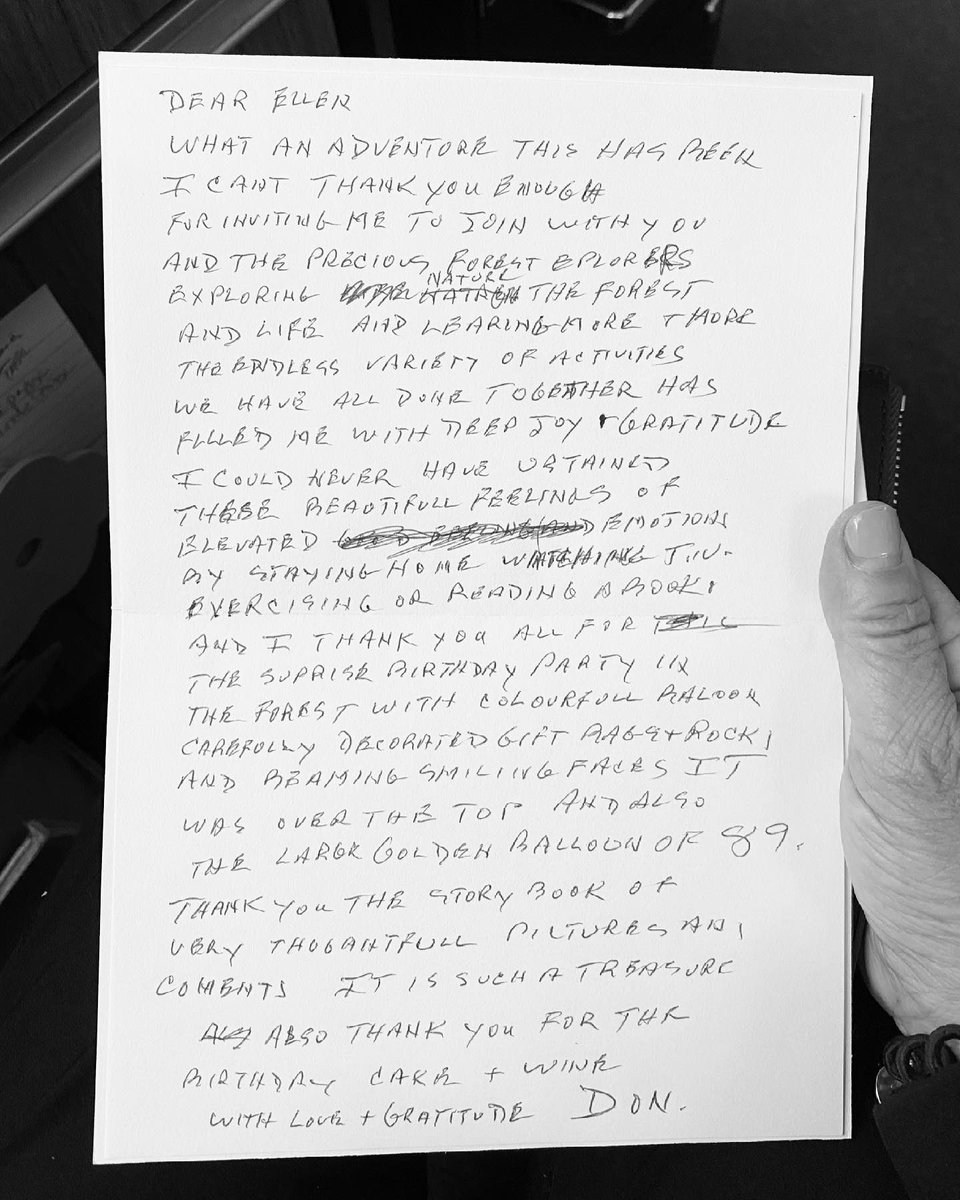 DEAR ELLEN
WHAT AN ADVENTURE THIS HAS BEEN
I CANT THANK YOU ENOUGH
FOR INVITING ME TO JOIN WITH YOU
AND THE PRECIOUS FOREST EPLORERS
EXPLORING NATURE THE FOREST
AND LIFE AND LEARING MORE
THE ENDLESS VARIETY OF ACTIVITIES
WE HAVE ALL DONE TOGETHER HAS
FILLED ME WITH DEEP JOY + GRATITUDE
I COULD NEVER HAVE OBTAINED
THESE BEAUTIFULL FEELINGS OF
ELEVATED EMOTIONS
BY STAYING HOME WATCHING T.V.
EXERCISING OR READING A BOOK.
AND I THANK YOU ALL FOR
THE SUPRISE BIRTHDAY PARTY IN
THE FOREST WITH COLOURFULL BALOON
CAREFULLY DECORATED GIFT BAGS + ROCK,
AND BEAMING SMILING FACES IT
WAS OVER THE TOP AND ALSO
THE LARGE GOLDEN BALLOON OF 89.
THANK YOU THE STORY BOOK OF
VERY PICTURES AN,
COMENTS IT IS SUCH A TREASURE
ALSO THANK YOU FOR THE
BIRTHDAY CAKE + WINE
WITH LOVE + GRATITUDE DON.